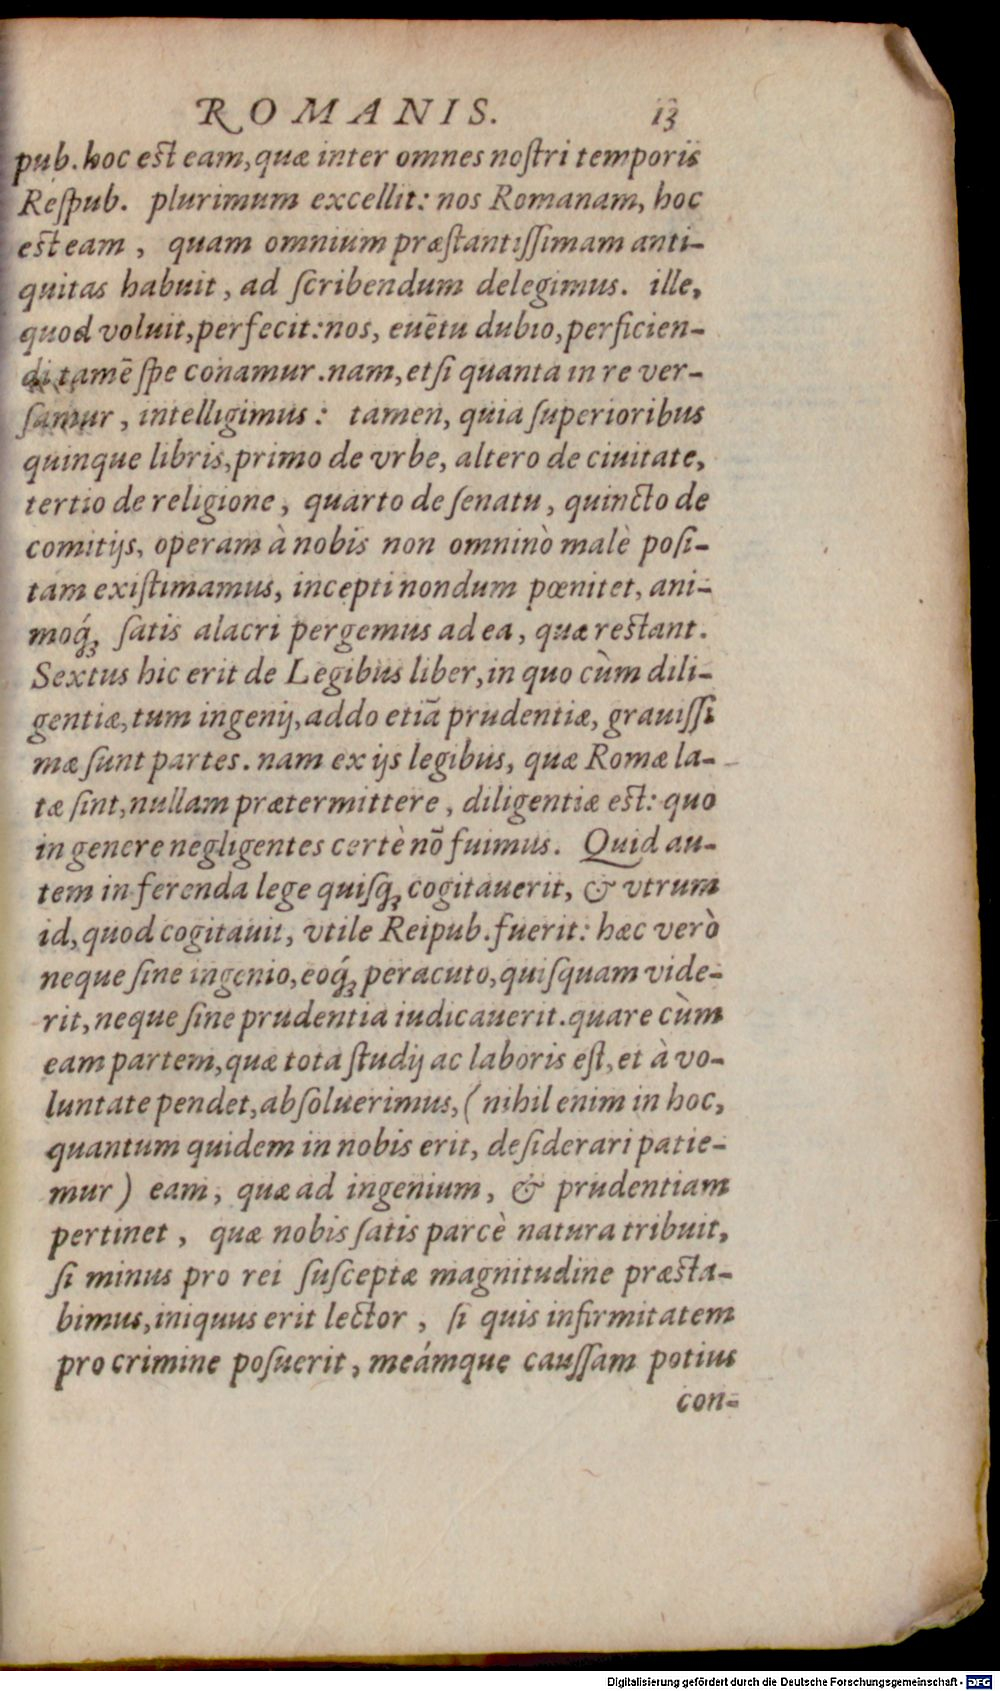 ROMANIS. 13
pub. hoc est eam, quæ inter omnes nostri temporis
Respub. plurimum excellit: nos Romanam, hoc
est eam, quam omnium præstantissimam anti-
quitas habuit, ad scribendum delegimus. ille,
quod voluit, perfecit: nos, euẽtu dubio, perficien-
di tamẽ spe conamur. nam, etsi quanta in re ver-
samur, intelligimus: tamen, quia superioribus
quinque libris, primo de vrbe, altero de ciuitate,
tertio de religione, quarto de senatu, quincto de
comitijs, operam à nobis non omninò malè posi-
tam existimamus, incepti nondum pœnitet, ani-
moq́; satis alacri pergemus ad ea, quæ restant.
Sextus hic erit de Legibus liber, in quo cùm dili-
gentiæ, tum ingenij, addo etiã prudentiæ, grauissi
mæ sunt partes. nam ex ijs legibus, quæ Romæ la-
tæ sint, nullam prætermittere, diligentiæ est: quo
in genere negligentes certè nõ fuimus. Quid au-
tem in ferenda lege quisq; cogitauerit, & vtrum
id, quod cogitauit, vtile Reipub. fuerit: hæc verò
neque sine ingenio, eoq́; peracuto, quisquam vide-
rit, neque sine prudentia iudicauerit. quare cùm
eam partem, quæ tota studij ac laboris est, et à vo-
luntate pendet, absoluerimus, (nihil enim in hoc,
quantum quidem in nobis erit, desiderari patie-
mur) eam, quæ ad ingenium, & prudentiam
pertinet, quæ nobis satis parcè natura tribuit,
si minus pro rei susceptæ magnitudine præsta-
bimus, iniquus erit lector, si quis infirmitatem
pro crimine posuerit, meámque caussam potius
con-
Digitalisierung gefördert durch die Deutsche Forschungsgemeinschaft - DFG